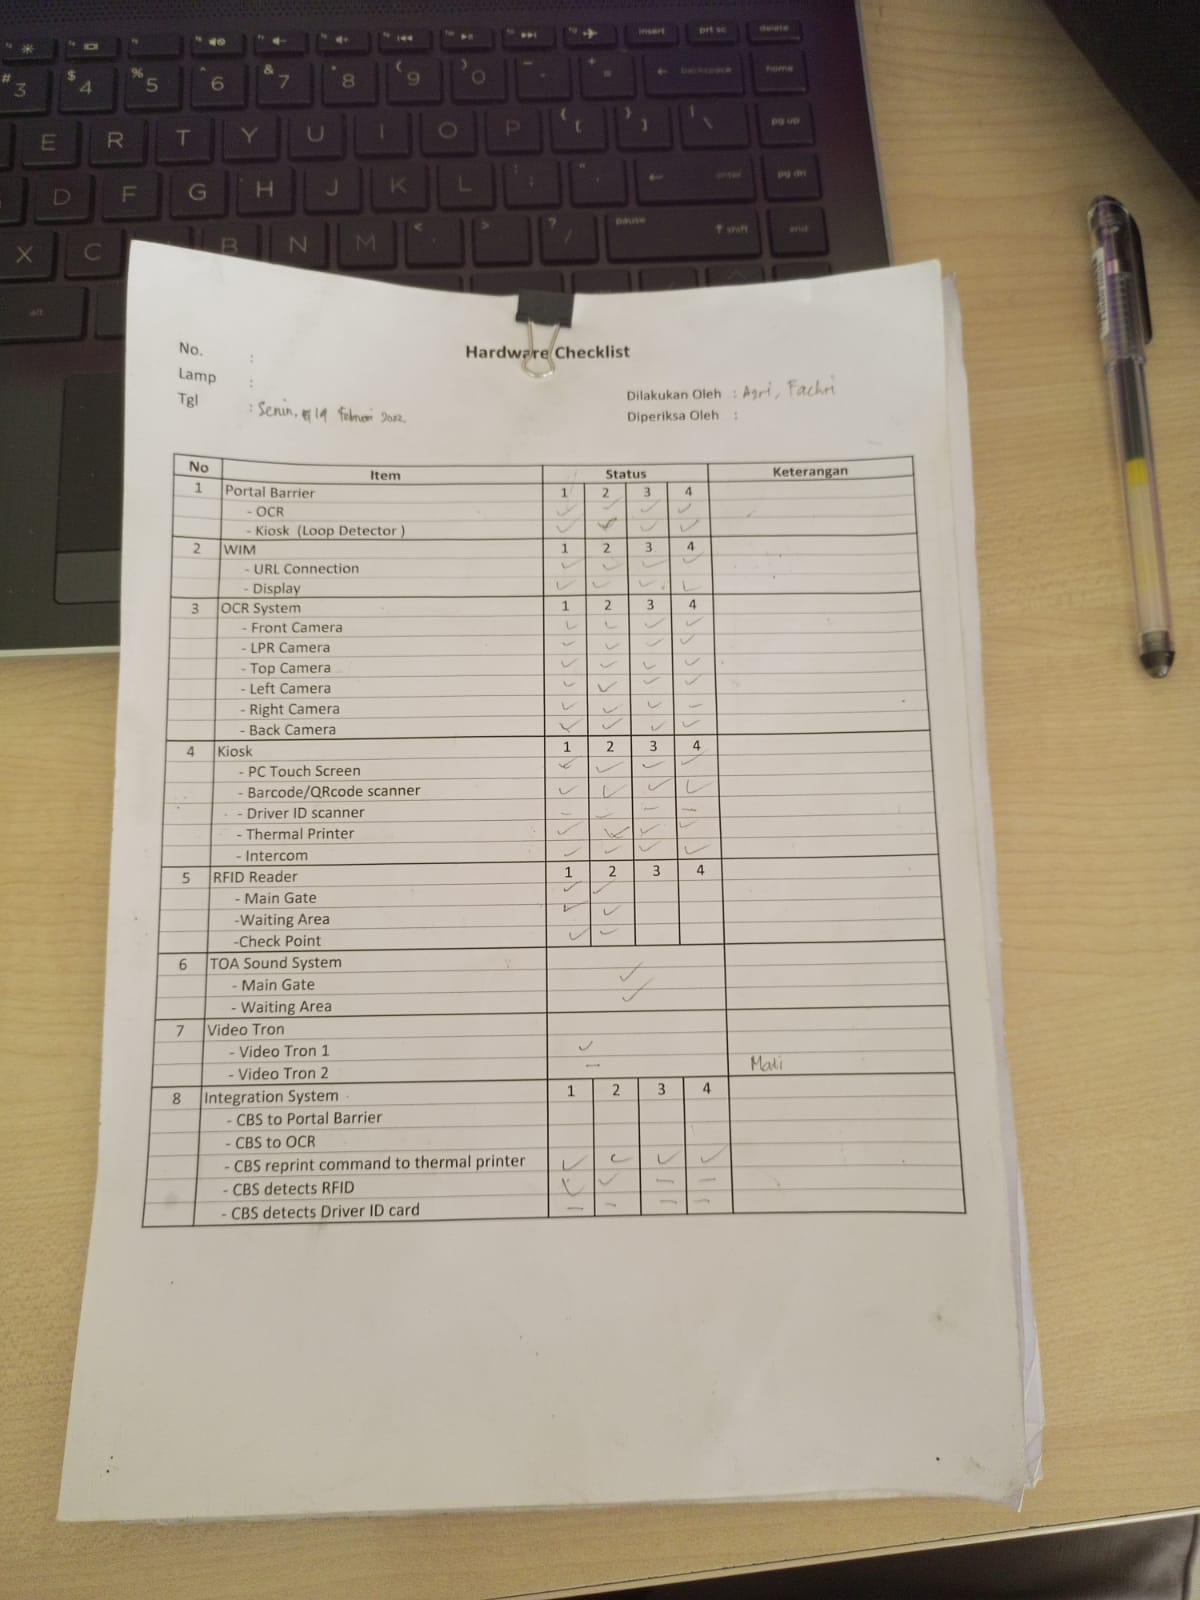 insert prt sc delete
# 3 $ 4 % 5 ^ 6 & 7 * 8 ( 9 ) 0 - + = backspace home
E R T Y U I O P { [ } ] | \ pg up
D F G H J K L : ; " ' enter pg dn
X C B N M < , > . ? / pause shift end
alt
Hardware Checklist
No. :
Lamp :
Tgl : Senin, 19 Februari 2022
Dilakukan Oleh : Agri, Fachri
Diperiksa Oleh :
No Item Status Keterangan
1 Portal Barrier 1 2 3 4
- OCR ✓ ✓ ✓ ✓
- Kiosk (Loop Detector ) ✓ ✓ ✓ ✓
2 WIM 1 2 3 4
- URL Connection ✓ ✓ ✓ ✓
- Display ✓ ✓ ✓ ✓
3 OCR System 1 2 3 4
- Front Camera ✓ ✓ ✓ ✓
- LPR Camera ✓ ✓ ✓ ✓
- Top Camera ✓ ✓ ✓ ✓
- Left Camera ✓ ✓ ✓ ✓
- Right Camera ✓ ✓ ✓ –
- Back Camera ✓ ✓ ✓ ✓
4 Kiosk 1 2 3 4
- PC Touch Screen ✓ ✓ ✓ ✓
- Barcode/QRcode scanner ✓ ✓ ✓ ✓
- Driver ID scanner – – – –
- Thermal Printer ✓ ✓ ✓ ✓
- Intercom ✓ ✓ ✓ ✓
5 RFID Reader 1 2 3 4
- Main Gate ✓ ✓
-Waiting Area ✓ ✓
-Check Point ✓ ✓
6 TOA Sound System
- Main Gate ✓
- Waiting Area ✓
7 Video Tron
- Video Tron 1 ✓
- Video Tron 2 – Mati
8 Integration System 1 2 3 4
- CBS to Portal Barrier
- CBS to OCR
- CBS reprint command to thermal printer ✓ ✓ ✓ ✓
- CBS detects RFID ✓ ✓ – –
- CBS detects Driver ID card – – – –